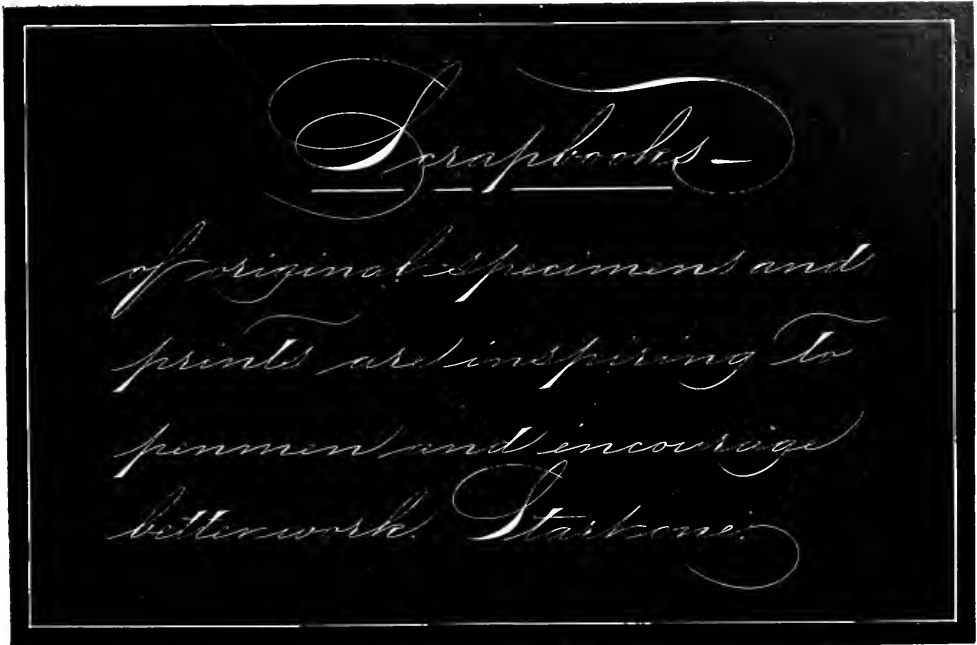 Scrapbooks—
of original specimens and
prints are inspiring to
penmen and encourage
better work. Start one.